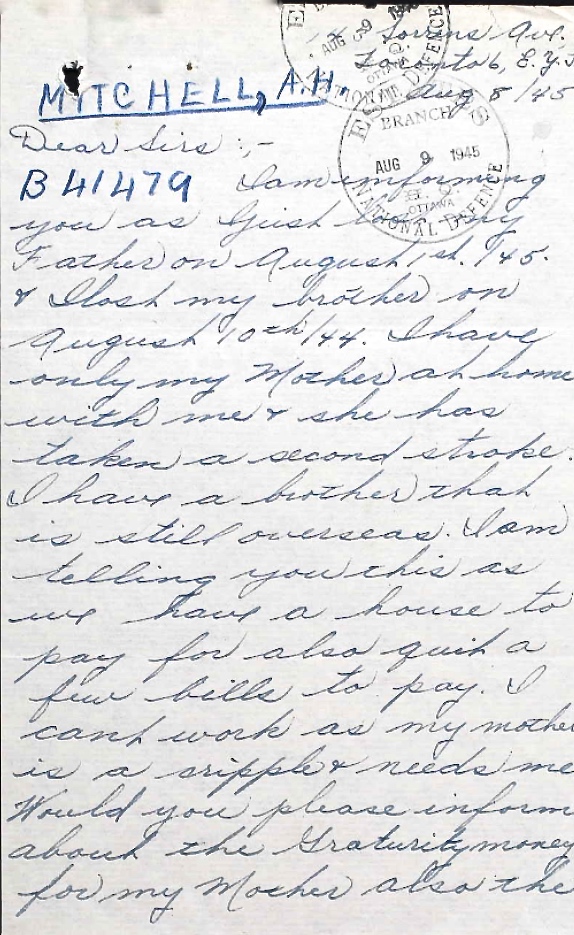 Sorens Ave.
Toronto 6, E.Y.T
Aug 8/45
MITCHELL, A.H.
Dear Sirs :,-
B 41479 I am informing
you as I just lost my
Father on August 1st. /45.
& I lost my brother on
August 10th/44. I have
only my Mother at home
with me & she has
taken a second stroke.
I have a brother that
is still overseas. I am
telling you this as
we have a house to
pay for also quit a
few bills to pay. I
cant work as my mother
is a cripple & needs me
Would you please inform
about the Graturity money
for my Mother also the
BRANCH
AUG 9 1945
OTTAWA
NATIONAL DEFENCE
AUG 9
OTTAWA
NATIONAL DEFENCE